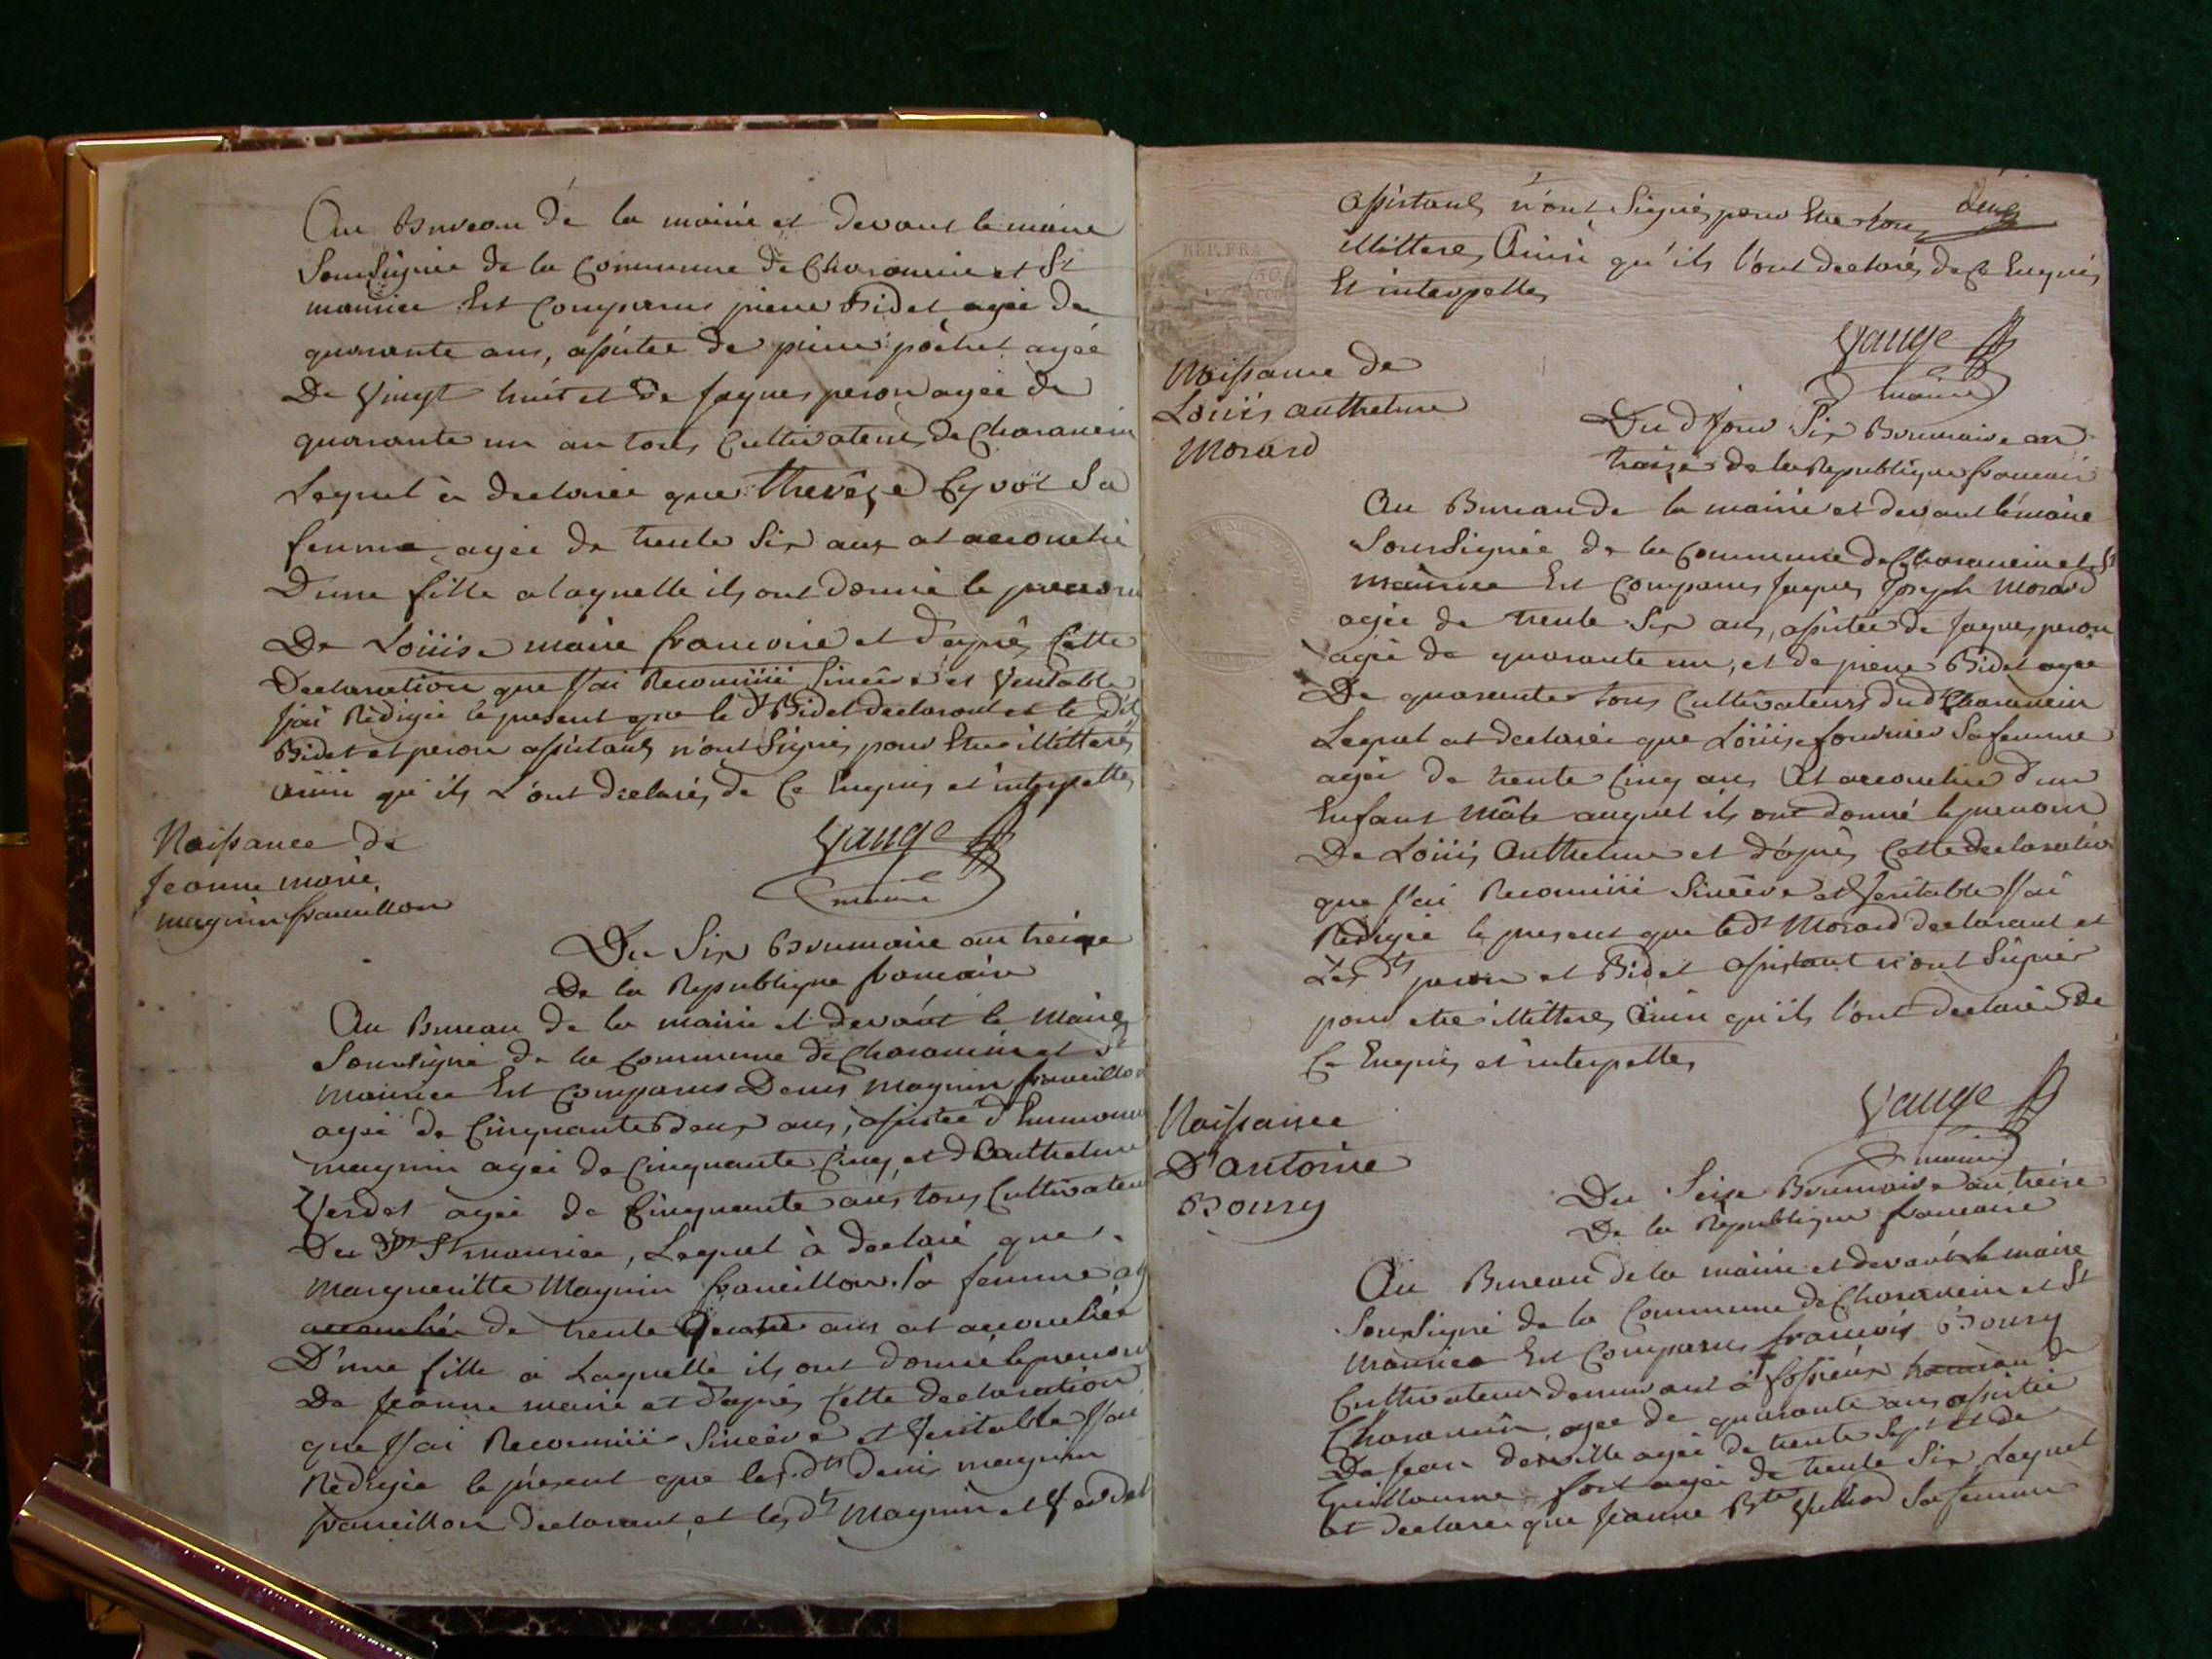 Au Bureau de la mairie et devant le maire
Sousignée de la Commune de Charancin et St
maurice Est Comparus pierre Bidet agée de
quarante ans, assistée de pierre pochet agéé
De Vingt huit et de Jaques peron agée de
quarante un an tous Cultivateurs de Charancin
Lequel à declarée que Therèse Cyvot Sa
femme agée de trente Six ans at accouchée
Dune fille a laquelle ils ont donnée le prenom
De Loüise marie francoise et d'aprés Cette
Declaration que J'ai Reconnüe Sincère et Veritable
J'ai Rèdigée le present que le dt Bidet declarant et le dit
Bidet et peron assistants n'ont Signés pour Etre illitterés
Ainsi qu'ils L'ont declarés de Ce Enquis et interpellés
Vange
maire
Naissance de
Jeanne marie
magnin francillon
Du Six Brumaire an treize
De la Republique francaise
Au Bureau de la mairie et devant le Maire
Sousigné de la Commune de Charancin et St
Maurice Est Comparus Denis Magnin francillon
agée de Cinquante deux ans, assistée d'Emmonu
magnin agée de Cinquante Cinq, et d'Anthelme
Verdet agée de Cinquante ans tous Cultivateurs
Du dt St maurice, Lequel à declaré que
Margueritte Magnin francillon Sa femme ag
accouchée de trente Quatre ans at accouchée
D'une fille a Laquelle ils ont donnée le prenom
De Jeanne marie et d'aprés Cette declaration
que J'ai Reconnüe Sincère et Veritable J'ai
Redigée le présent que les dts denis magnin
francillon declarant et les dts Magnin et Verdet
assistants n'ont Signés pour Etre tous
illitterés Ainsi qu'ils l'ont declarés de Ce Enquis
Et interpellés
REP. FRA
Vange
maire
Naissance de
Loüis anthelme
Morard
Du d Jour Six Brumaire an
treize de la Republique francaise
Au Bureau de la mairie et devant le maire
Sousignée de la Commune de Charancin et St
Maurice Est Comparus Jaques Joseph Morard
agée de trente Six ans, assistée de Jaques peron
agée de quarante un, et de pierre Bidet agée
De quarante tous Cultivateurs du dt Charancin
Lequel at declarée que Loüise fournier Sa femme
agée de trente Cinq ans At accouchée d'un
Enfant Mâle auquel ils ont donné le prenom
De Loüis Anthelme et d'aprés Cette declaration
que J'ai Reconnüe Sincère et Veritable J'ai
Redigée le present que le dt Morard declarant et
Les dts peron et Bidet assistant n'ont Signés
pour etre illitterés Ainsi qu'ils l'ont declarés de
Ce Enquis et interpellés
Vange
maire
Naissance
D'antoine
Boury
Du Seize Brumaire an treize
De la Republique francaise
Au Bureau de la mairie et devant le maire
Sousigné de la Commune de Charancin et St
Maurice Est Comparus francois Boury
Cultivateur demeurant à fossieux hameau de
Charancin, agée de quarante ans assistée
De Jean derville agée de trente Sept et de
Guillaume fort agée de trente Six Lequel
at declarée que Jeanne Bte Vullhod Sa femme